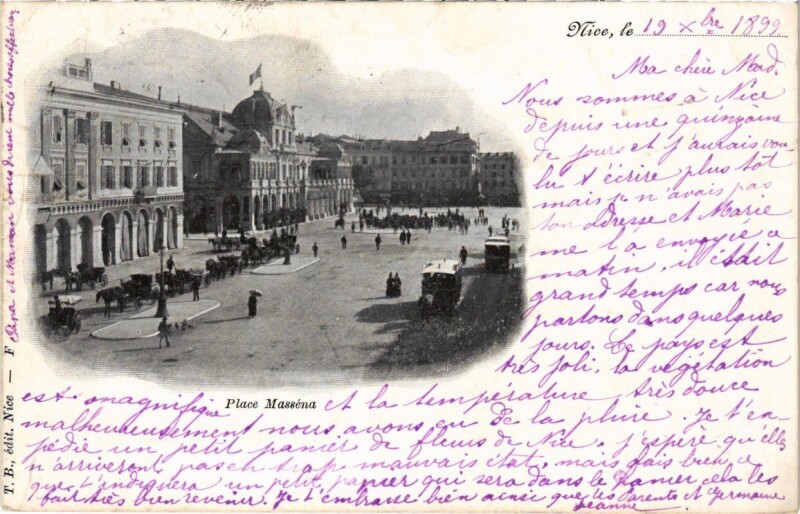 Nice, le 19 Xbre 1899
Ma chère Mad.
Nous sommes à Nice
depuis une quinzaine
de jours et j'aurais vou
lu t'écrire plus tôt
mais je n'avais pas
ton adresse et Marie
me l'a envoyée ce
matin, il était
grand temps car nous
partons dans quelques
jours. Le pays est
très joli, la végétation
est magnifique et la température très douce
Place Masséna
malheureusement nous avons eu de la pluie. Je t'ex-
pédie un petit panier de fleurs de Nice. j'espère qu'elles
n'arriveront pas en trop mauvais état, mais fais bien ce
que t'indiquera un petit papier qui sera dans le panier, cela les
fait très bien revenir. Je t'embrasse bien ainsi que tes parents et Germaine
Jeanne
Papa et Maman vous disent mille choses affect
T. B., édit. Nice — F